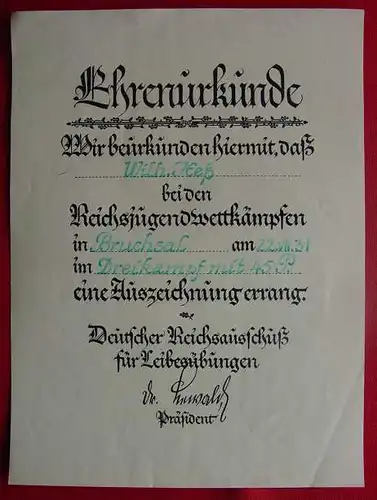 Ehrenurkunde
Wir beurkunden hiermit, daß
Wilh. Heß
bei den
Reichsjugendwettkämpfen
in Bruchsal am 22.VIII.31
im Dreikampf mit 45 P.
eine Auszeichnung errang.
Deutscher Reichsausschuß
für Leibesübungen
Dr. Lewald
Präsident